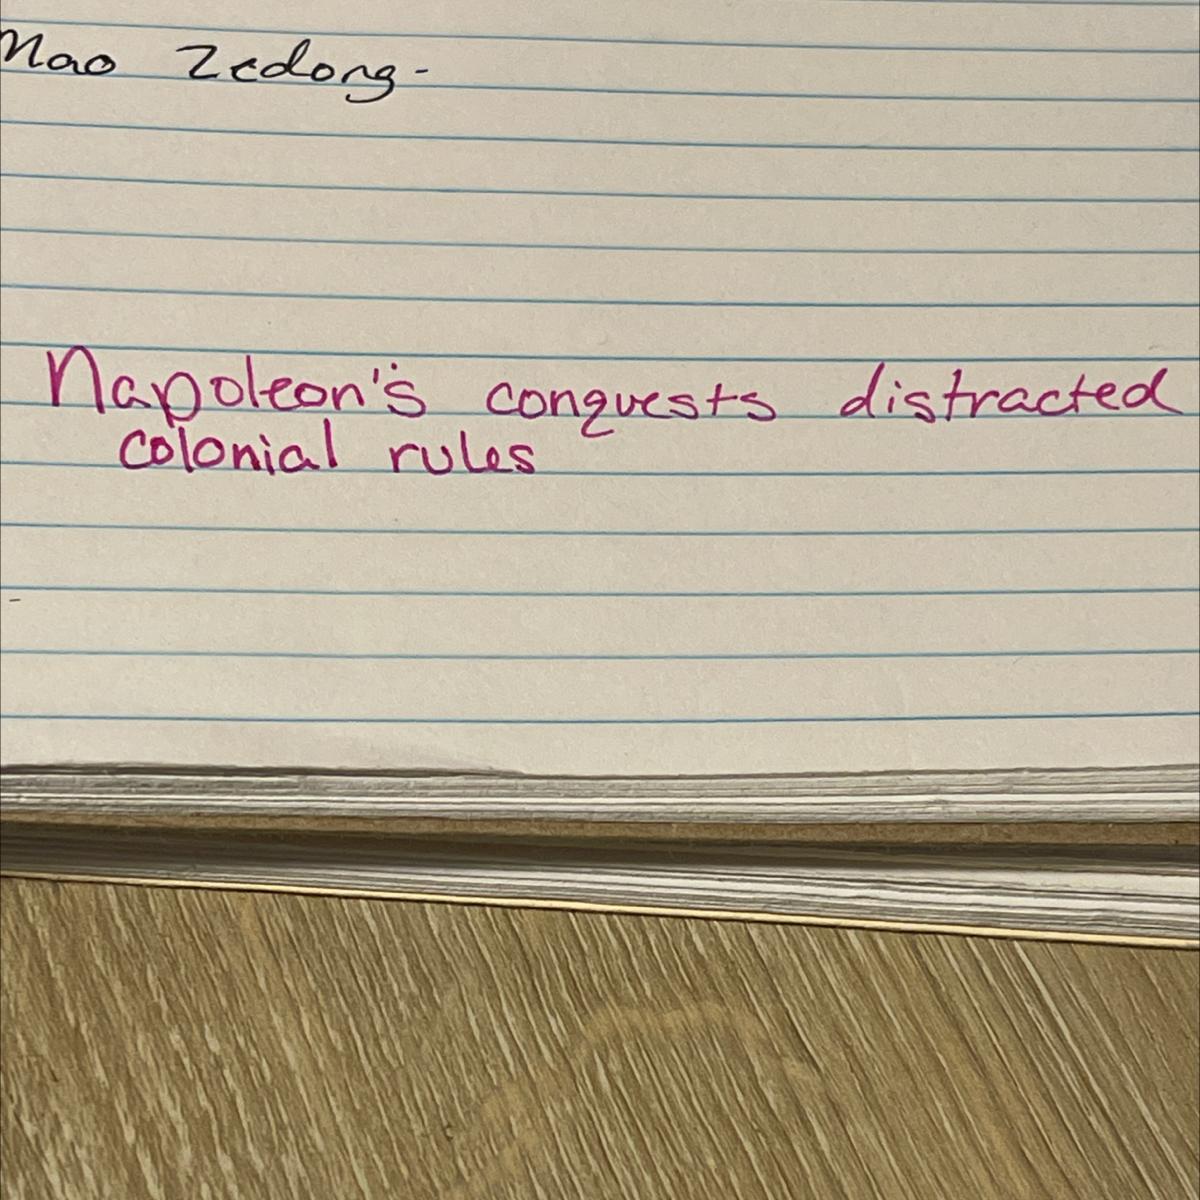 Mao Zedong-
Napoleon's conquests distracted
colonial rules